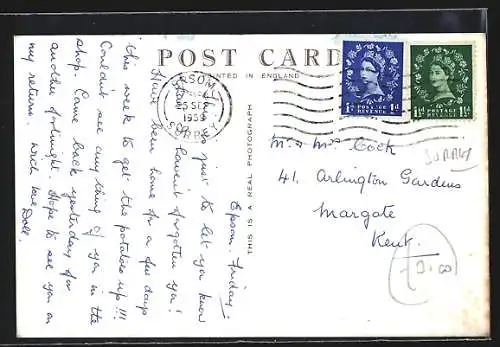 POST CARD
PRINTED IN ENGLAND
THIS IS A REAL PHOTOGRAPH
EPSOM
SEP
1959
SURREY
POSTAGE
REVENUE
1D 1D
POSTAGE
REVENUE
1½D 1½D
Epsom. Friday.
This is just to let you know
I haven't forgotten you!
Have been home for a few days
this week to get the potatoes up!!!
Couldn't see anything of you in the
shop. Came back yesterday for
another fortnight. Hope to see you on
my return. With love Doll.
Mr & Mrs Cock
41. Arlington Gardens
Margate
Kent.
SURREY
£3.00